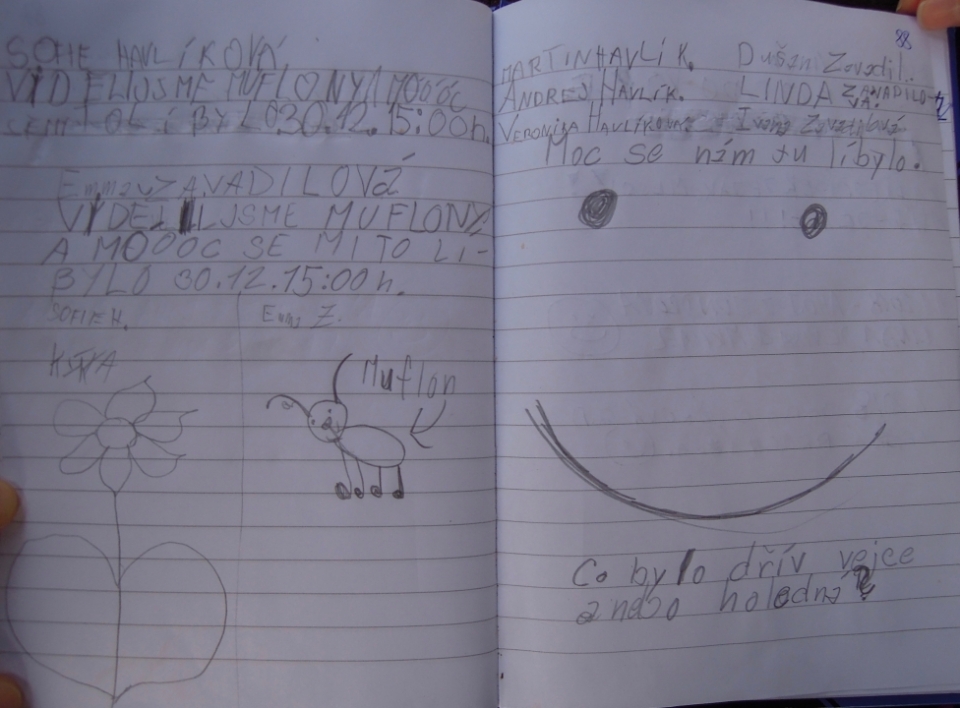 SOFIE HAVLÍKOVÁ
VIDĚLI JSME MUFLONY MOÓÓC
SEMI TO LÍBYLO 30.12.15:00h.
Emma ZAVADILOVÁ
VIDĚLI JSME MUFLONY
A MOÓOC SE MI TO LÍ-
BYLO 30.12.15:00h.
SOFIE H. Emma Z.
KYTKA
Muflon
88
MARTIN HAVLÍK. Dušan Zavadil.
ANDREJ HAVLÍK. LINDA ZAVADILO-
VÁ.
VERONIKA HAVLÍKOVÁ Ivana Zavadilová
Moc se nám tu líbylo.
Co bylo dřív vejce
anebo holedná?